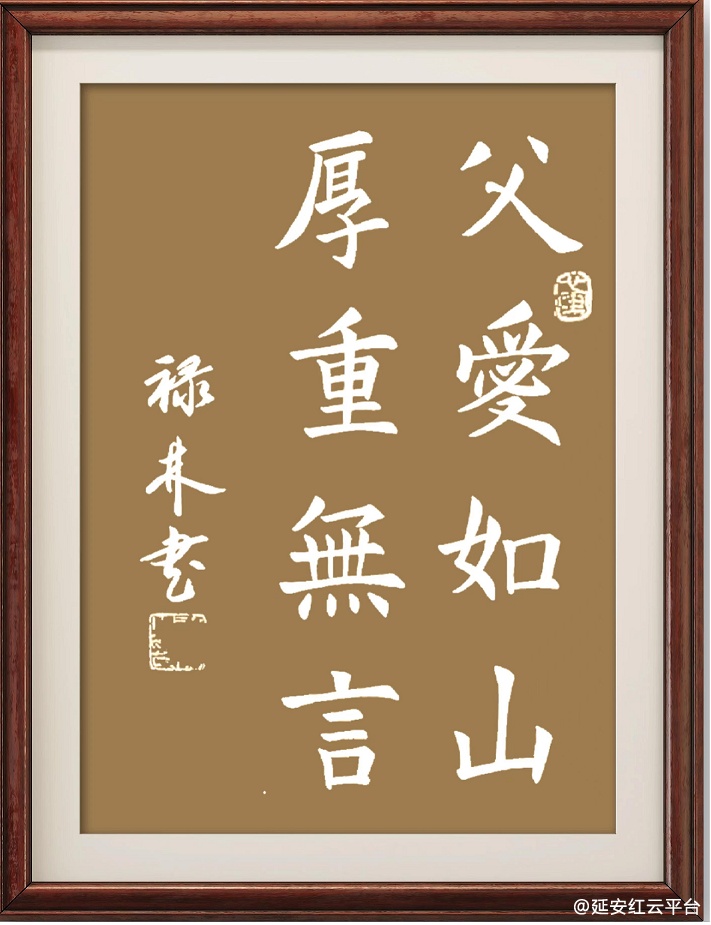 父愛如山
厚重無言
禄林书
@延安红云平台